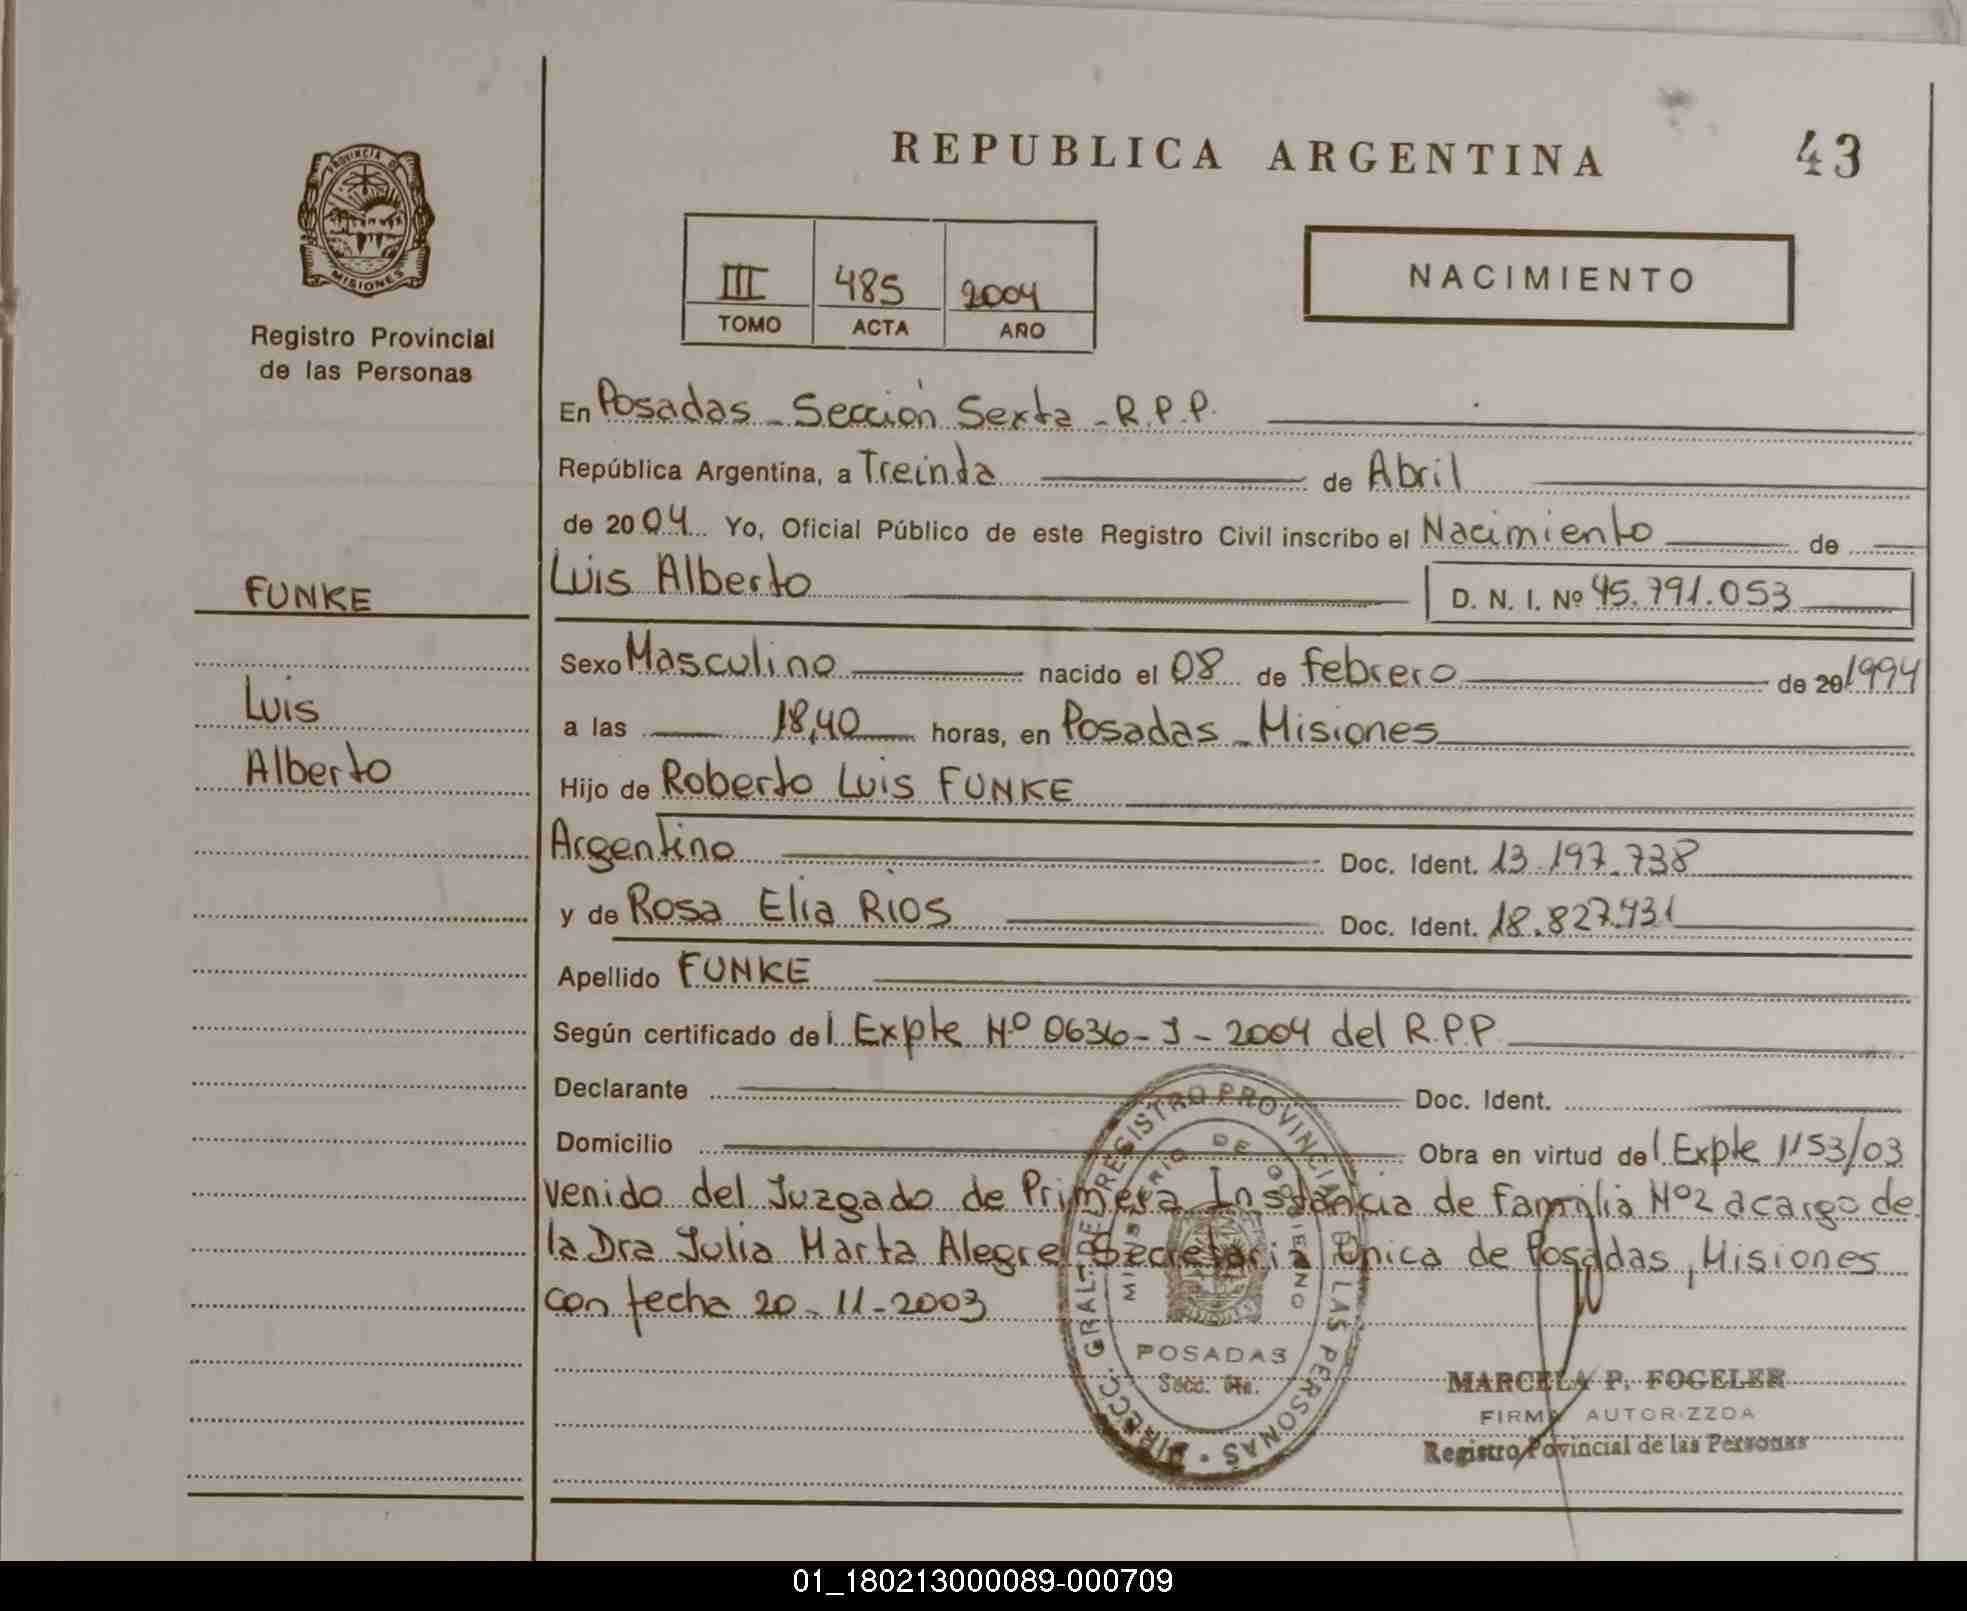 REPUBLICA ARGENTINA 43
PROVINCIA DE
MISIONES
Registro Provincial
de las Personas
III 485 2004
TOMO ACTA AÑO
NACIMIENTO
En Posadas - Sección Sexta - R.P.P.
República Argentina, a Treinta de Abril
de 2004 Yo, Oficial Público de este Registro Civil inscribo el Nacimiento de
FUNKE
Luis Alberto D. N. I. Nº 45.791.053
Sexo Masculino nacido el 08 de febrero de 20 1994
Luis
a las 18,40 horas, en Posadas - Misiones
Alberto
Hijo de Roberto Luis FUNKE
Argentino Doc. Ident. 13.197.738
y de Rosa Elia RIOS Doc. Ident. 18.827.931
Apellido FUNKE
Según certificado del Expte Nº 0636-J-2004 del R.P.P.
Declarante Doc. Ident.
Domicilio Obra en virtud del Expte 1153/03
venido del Juzgado de Primera Instancia de Familia Nº2 a cargo de
la Dra Julia Marta Alegre Secretaria Unica de Posadas, Misiones
con fecha 20-11-2003
DIRECC. GRAL. DEL REGISTRO PROVINCIAL DE LAS PERSONAS
MINISTERIO DE GOBIERNO
POSADAS
Secc. 6ta.
MARCELA P. FOGELER
FIRMA AUTORIZZDA
Registro Povincial de las Personas
01_180213000089-000709